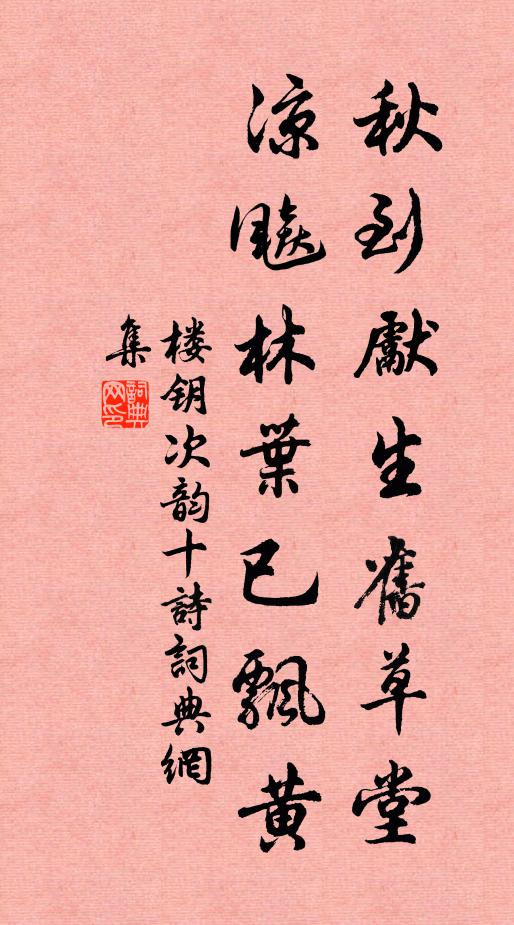 秋到獻生舊草堂
凉飚林葉已飄黄
楼钥次韵十詩詞典網
集
詞典網印